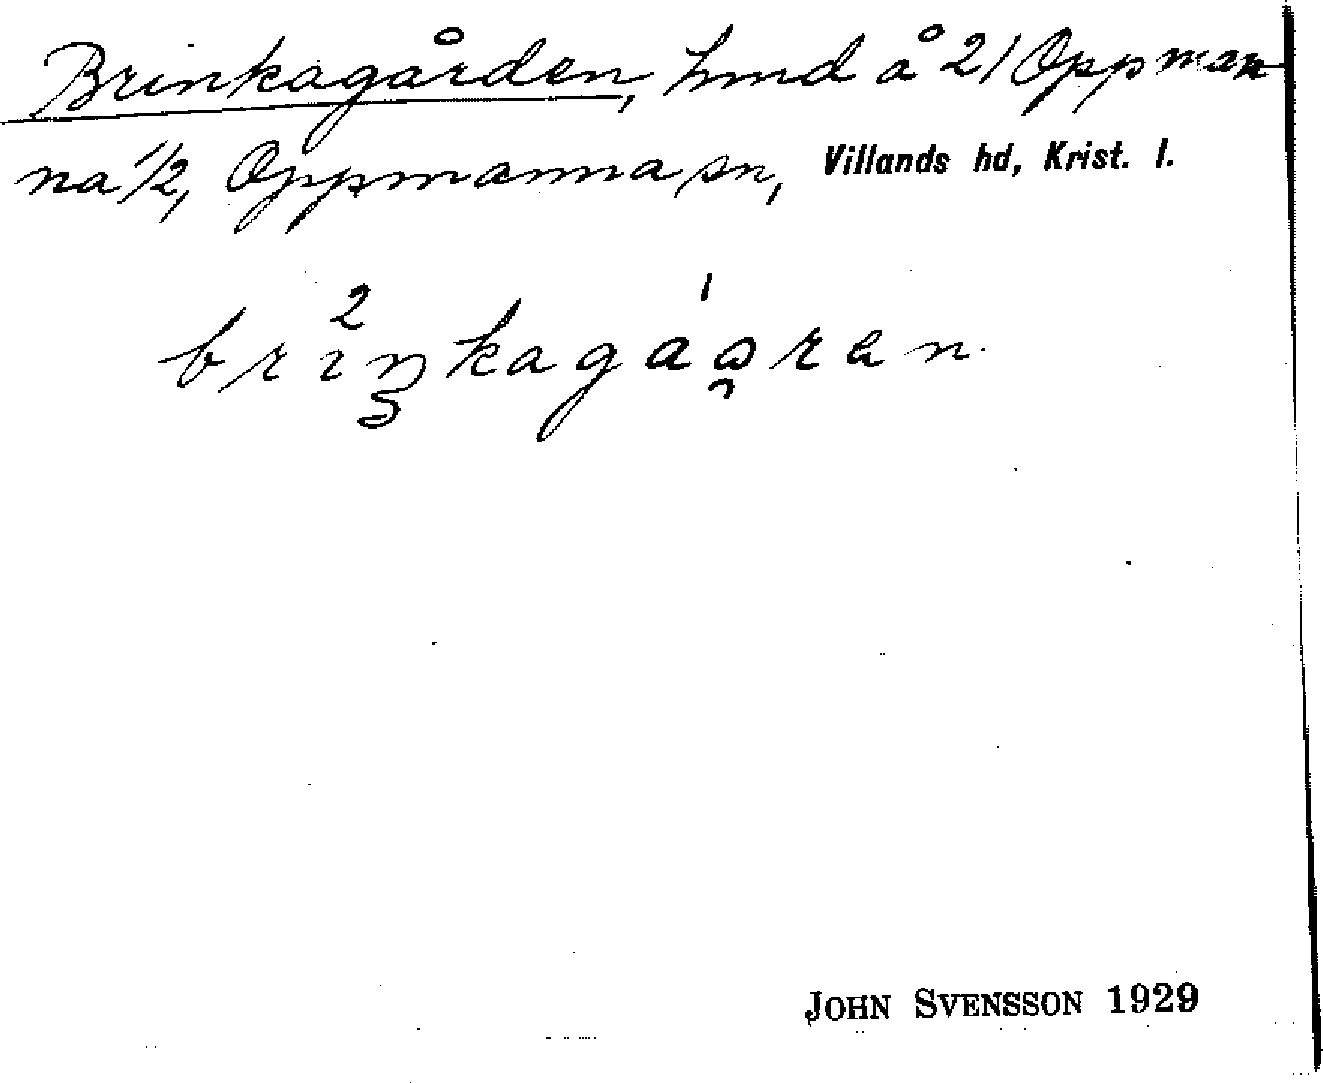 Brinkagården, hmd å 21 Oppman
na 1/2, Oppmanna sn, Villands hd, Krist. l.
2 1
brinkagaåren
JOHN SVENSSON 1929